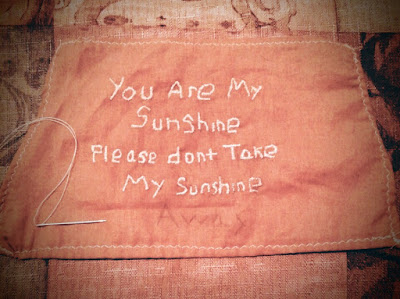 You Are My
Sunshine
Please dont Take
My Sunshine
Away